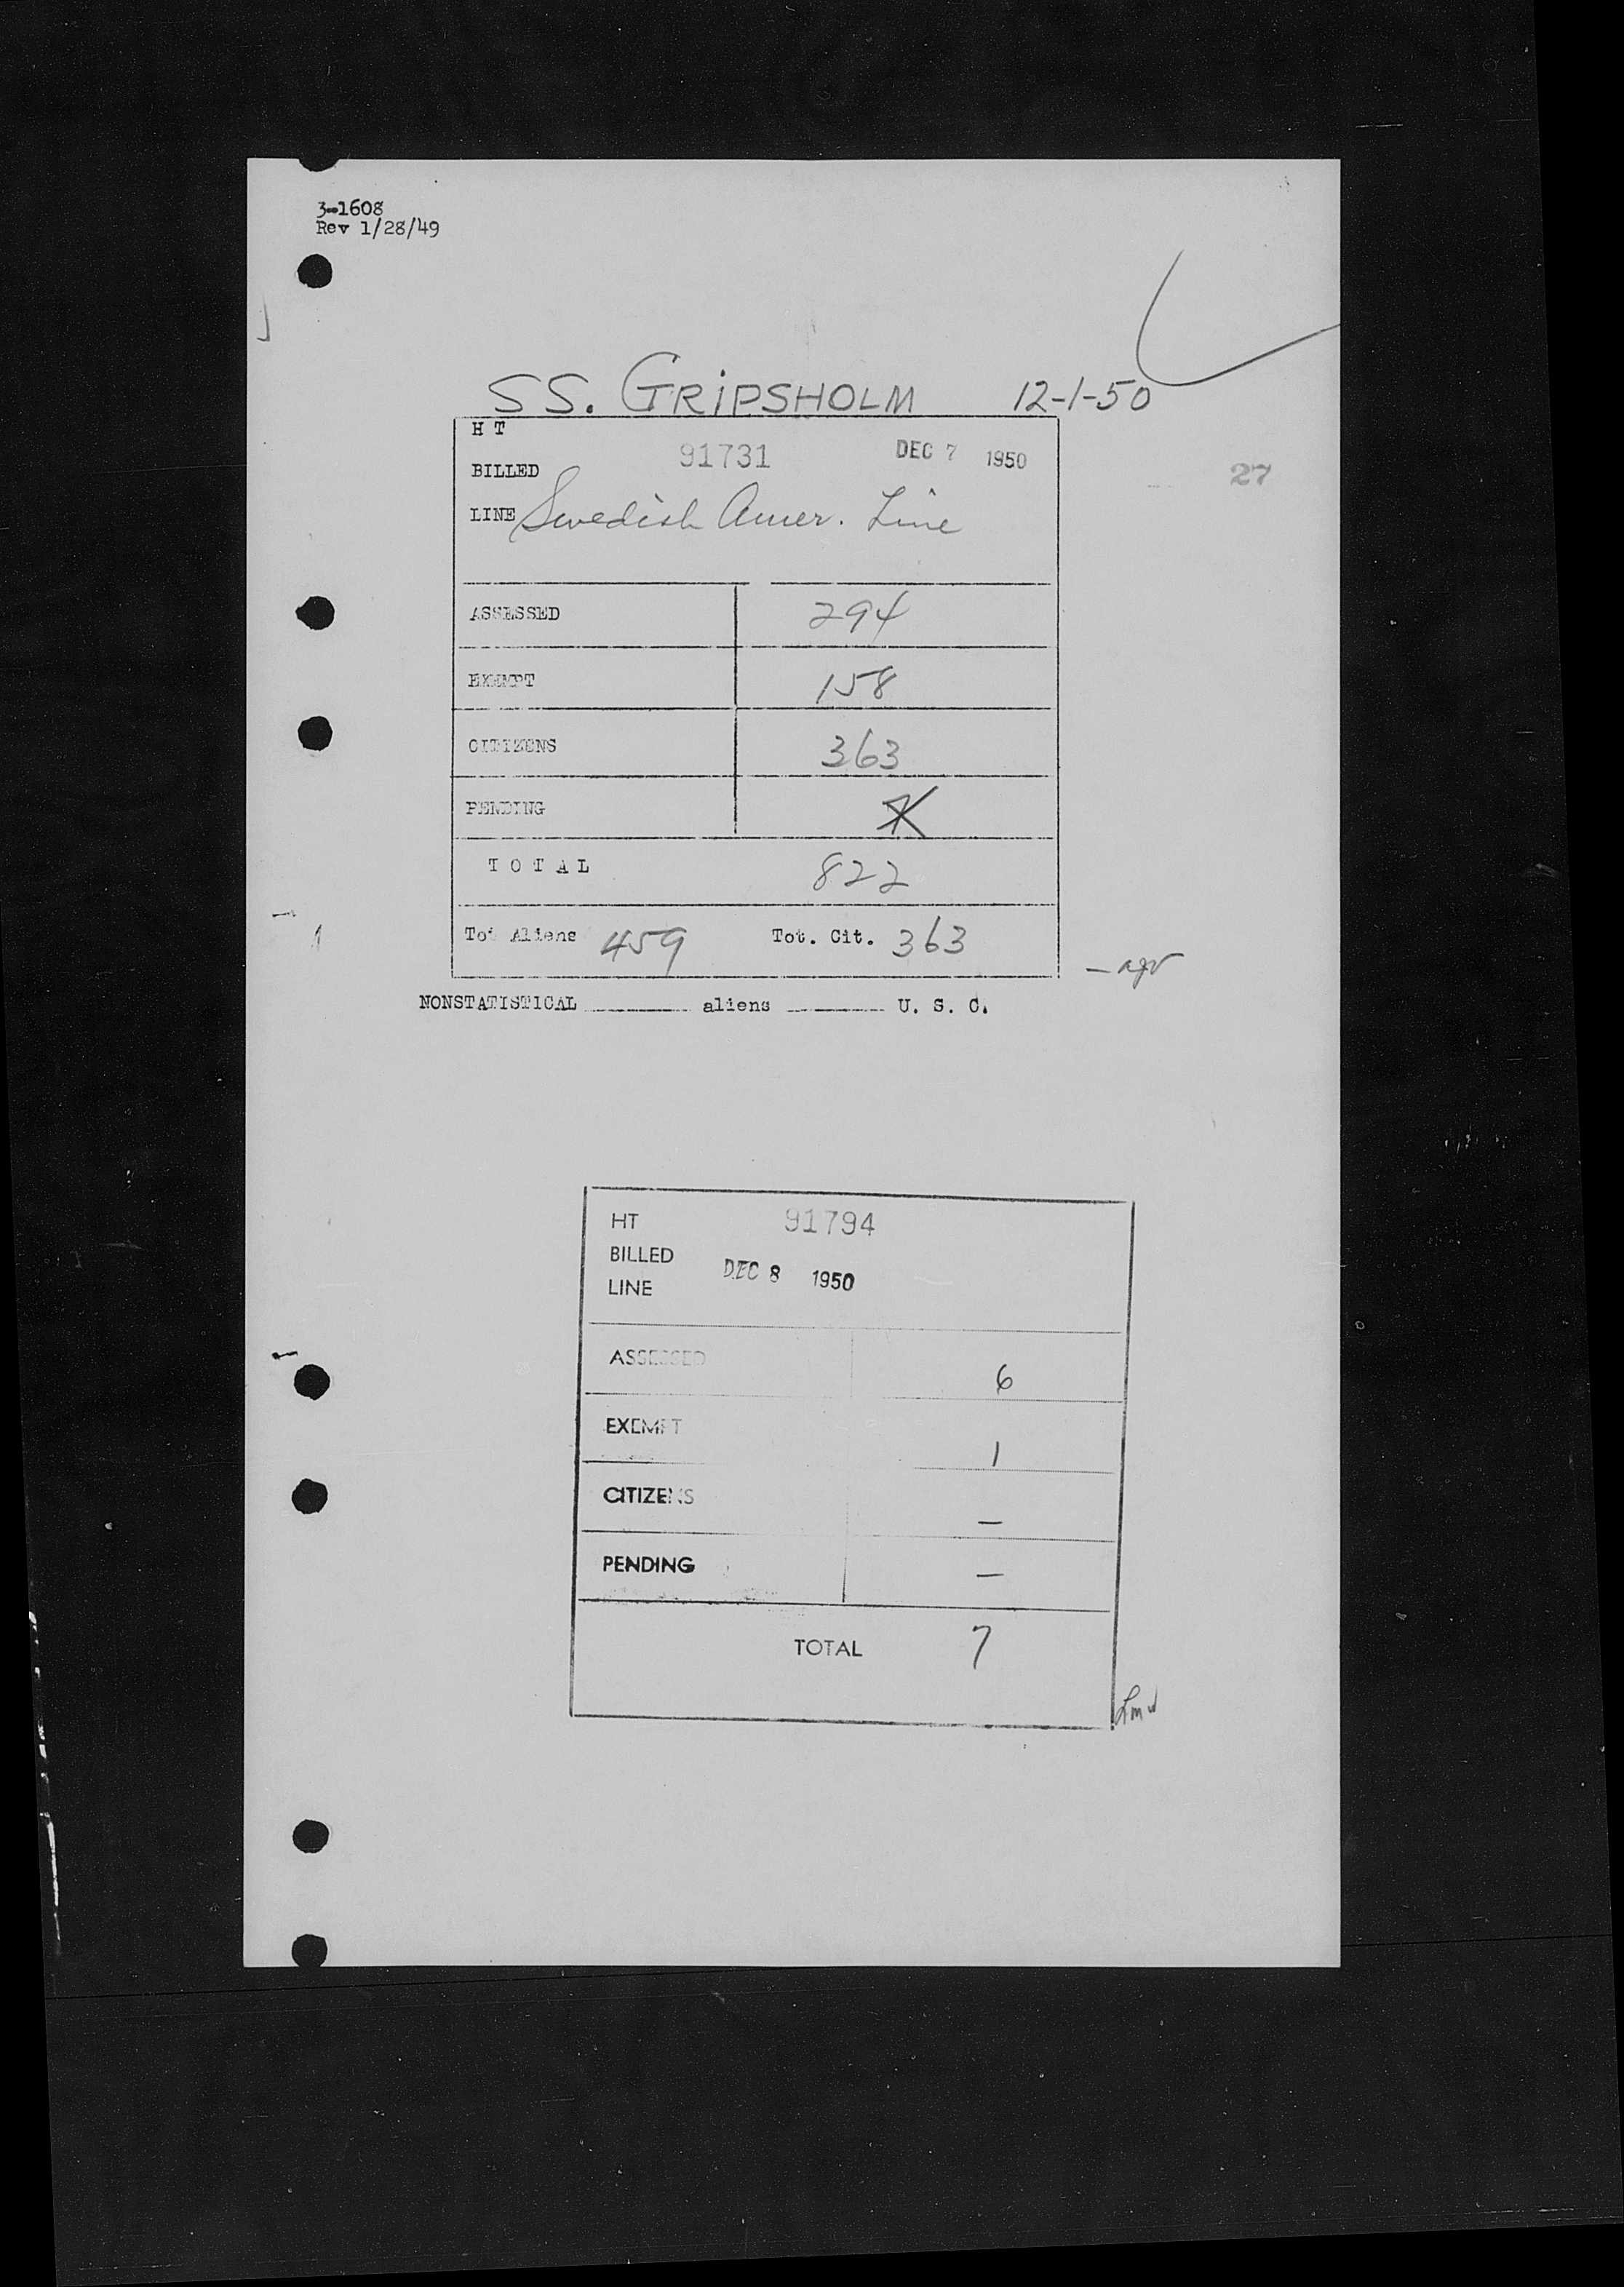 3-1608
Rev 1/28/49
SS. GRIPSHOLM 12-1-50
H T
91731 DEC 7 1950
BILLED
27
LINE Swedish Amer. Line
ASSESSED 294
EXEMPT 158
CITIZENS 363
PENDING 7
TOTAL 822
Tot Aliens 459 Tot. Cit. 363
NONSTATISTICAL aliens U. S. C.
HT 91794
BILLED
DEC 8 1950
LINE
ASSESSED 6
EXEMPT 1
CITIZENS —
PENDING —
TOTAL 7